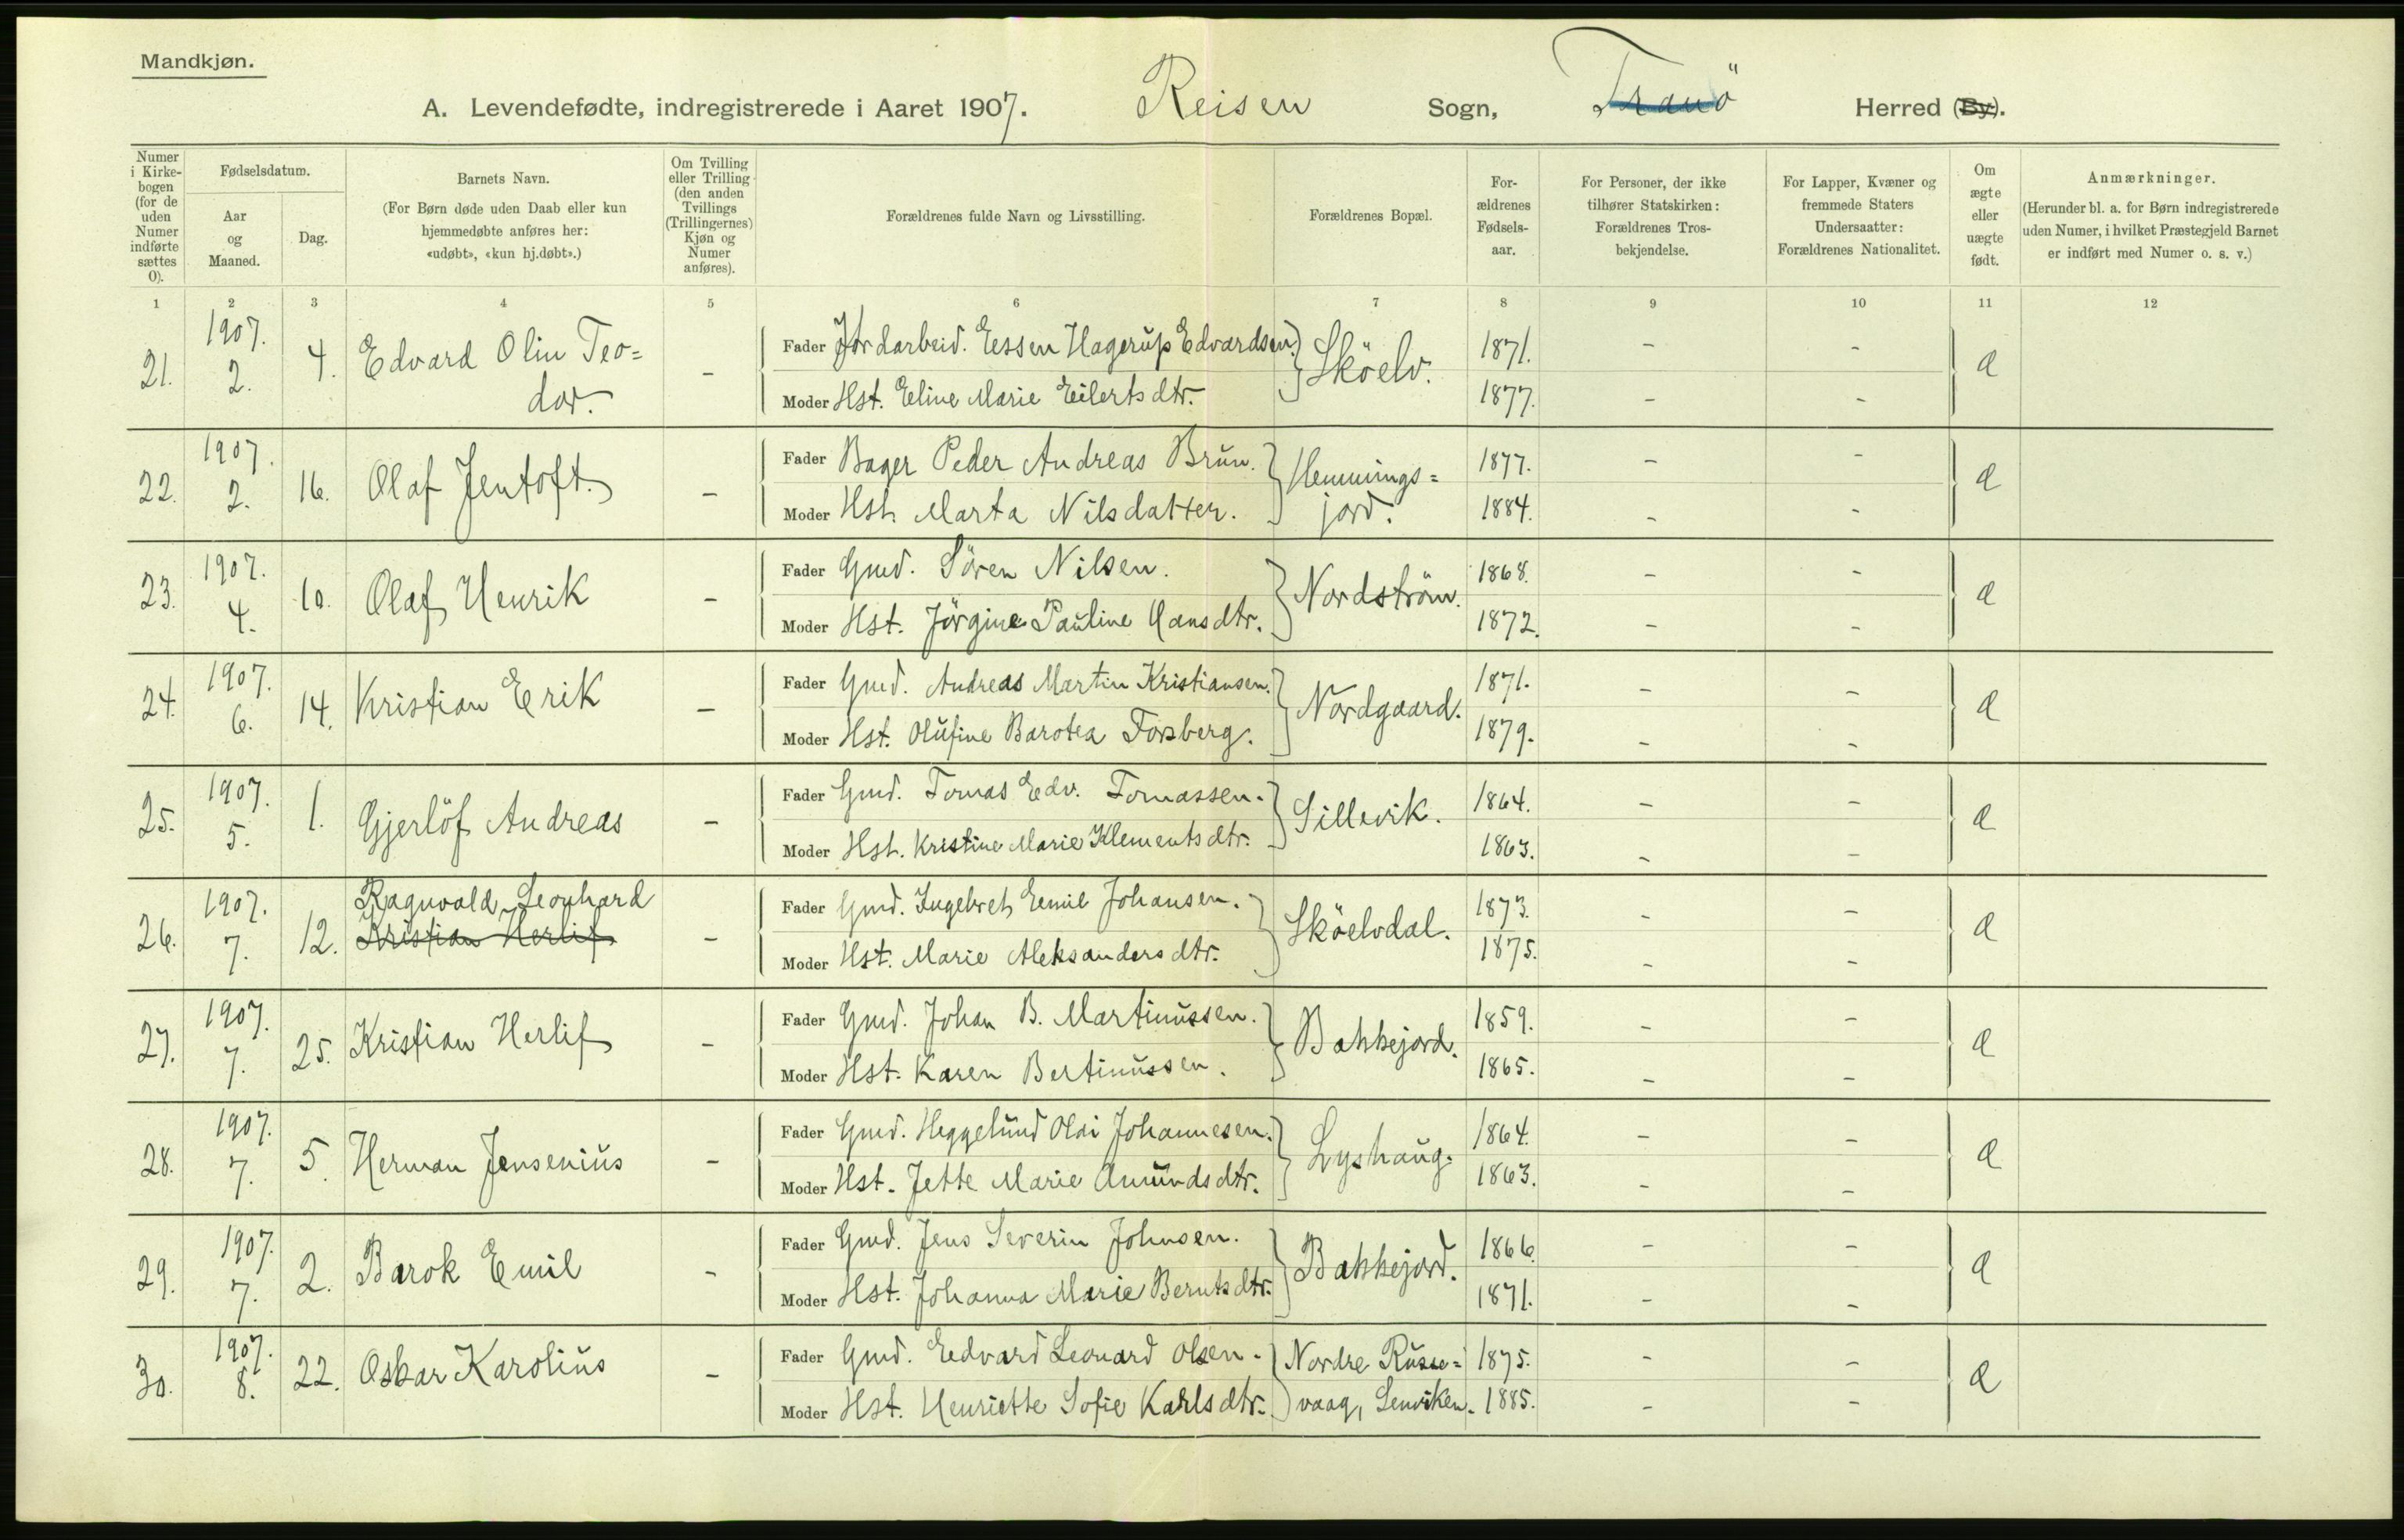 Mandkjøn.
A. Levendefødte, indregistrerede i Aaret 1907. Reisen Sogn, Tranö Herred (By).
Numer i Kirke-bogen (for de uden Numer indførte sættes 0).
Fødselsdatum.
Aar og Maaned.
Dag.
Barnets Navn.
(For Børn døde uden Daab eller kun hjemmedøbte anføres her: «udøbt», «kun hj.døbt».)
Om Tvilling eller Trilling (den anden Tvillings (Trillingernes) Kjøn og Numer anføres).
Forældrenes fulde Navn og Livsstilling.
Forældrenes Bopæl.
For-ældrenes Fødsels-aar.
For Personer, der ikke tilhører Statskirken: Forældrenes Tros-bekjendelse.
For Lapper, Kvæner og fremmede Staters Undersaatter: Forældrenes Nationalitet.
Om ægte eller uægte født.
Anmærkninger.
(Herunder bl. a. for Børn indregistrerede uden Numer, i hvilket Præstegjeld Barnet er indført med Numer o. s. v.)
1 2 3 4 5 6 7 8 9 10 11 12
21. 1907. 2. 4. Edvard Olin Teo=
dor. -
Fader Jordarbeid. Eessen Hagerup Edvardsen. Sköelv. 1871. - - Æ
Moder Hst. Eline Marie Eilertsdtr. 1877. - -
22. 1907. 2. 16. Olaf Jentoft. -
Fader Bager Peder Andreas Brun. Hemmings= 1877. - - Æ
Moder Hst. Marta Nilsdatter. jord. 1884. - -
23. 1907. 4. 10. Olaf Henrik -
Fader Gmd. Sören Nilsen. Nordström. 1868. - - Æ
Moder Hst. Jörgine Pauline Hansdtr. 1872. - -
24. 1907. 6. 14. Kristian Erik -
Fader Gmd. Andreas Martin Kristiansen. Nordgaard. 1871. - - Æ
Moder Hst. Olufine Barotea Forsberg. 1879. - -
25. 1907. 5. 1. Gjerlöf Andreas -
Fader Gmd. Tomas Edv. Tomassen. Sillevik. 1864. - - Æ
Moder Hst. Kristine Marie Klementsdtr. 1863. - -
26. 1907. 7. 12. Ragnvald Leonhard
Kristian Herlif -
Fader Gmd. Ingebret Eemil Johansen. Sköelvdal. 1873. - - Æ
Moder Hst. Marie Aleksandersdtr. 1875. - -
27. 1907. 7. 25. Kristian Herlif -
Fader Gmd. Johan B. Martinussen. Bakkejord. 1859. - - Æ
Moder Hst. Karen Bertinussen. 1865. - -
28. 1907. 7. 5. Herman Jensenius -
Fader Gmd. Heggelund Olai Johannesen. Lyshaug. 1864. - - Æ
Moder Hst. Jette Marie Amundsdtr. 1863. - -
29. 1907. 7. 2. Barok Emil -
Fader Gmd. Jens Severin Johnsen. Bakkejord. 1866. - - Æ
Moder Hst. Johanna Marie Berntsdtr. 1871. - -
30. 1907. 8. 22. Oskar Karolius -
Fader Gmd. Eedvard Leonard Olsen. Nordre Russe= 1875. - - Æ
Moder Hst. Henriette Sofie Karlsdtr. vaag, Lenviken. 1885. - -